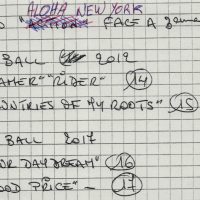 ALOHA NEW YORK
FACE A
BALL 2012
"RIDER" 14
OUNTRIES OF MY ROOTS" 15
BALL 2017
UR DAYDREAM" 16
OOD PRICE" — 17